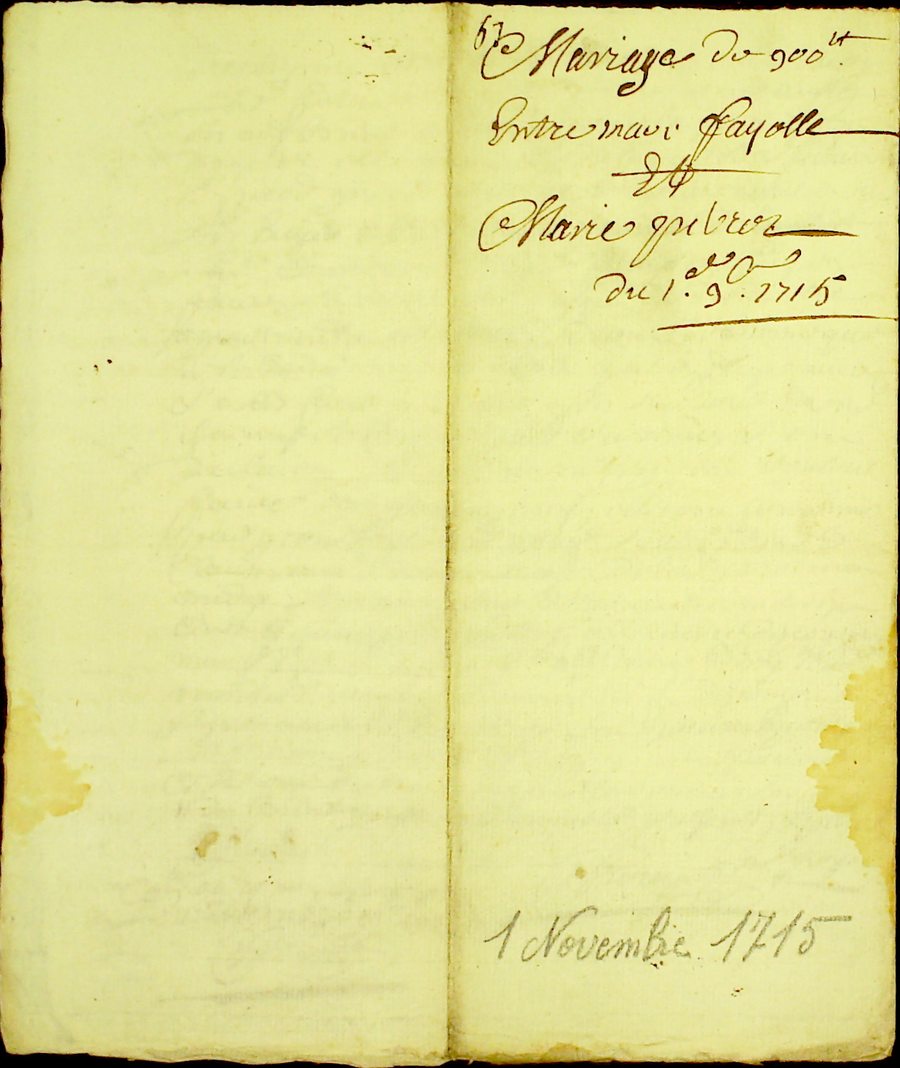 67
Mariage de 900ᵗᵗ
Entre marc ffayolle
Et
Marie
du 1.ᵉ 9.ᵇʳᵉ 1715
1 Novembre 1715